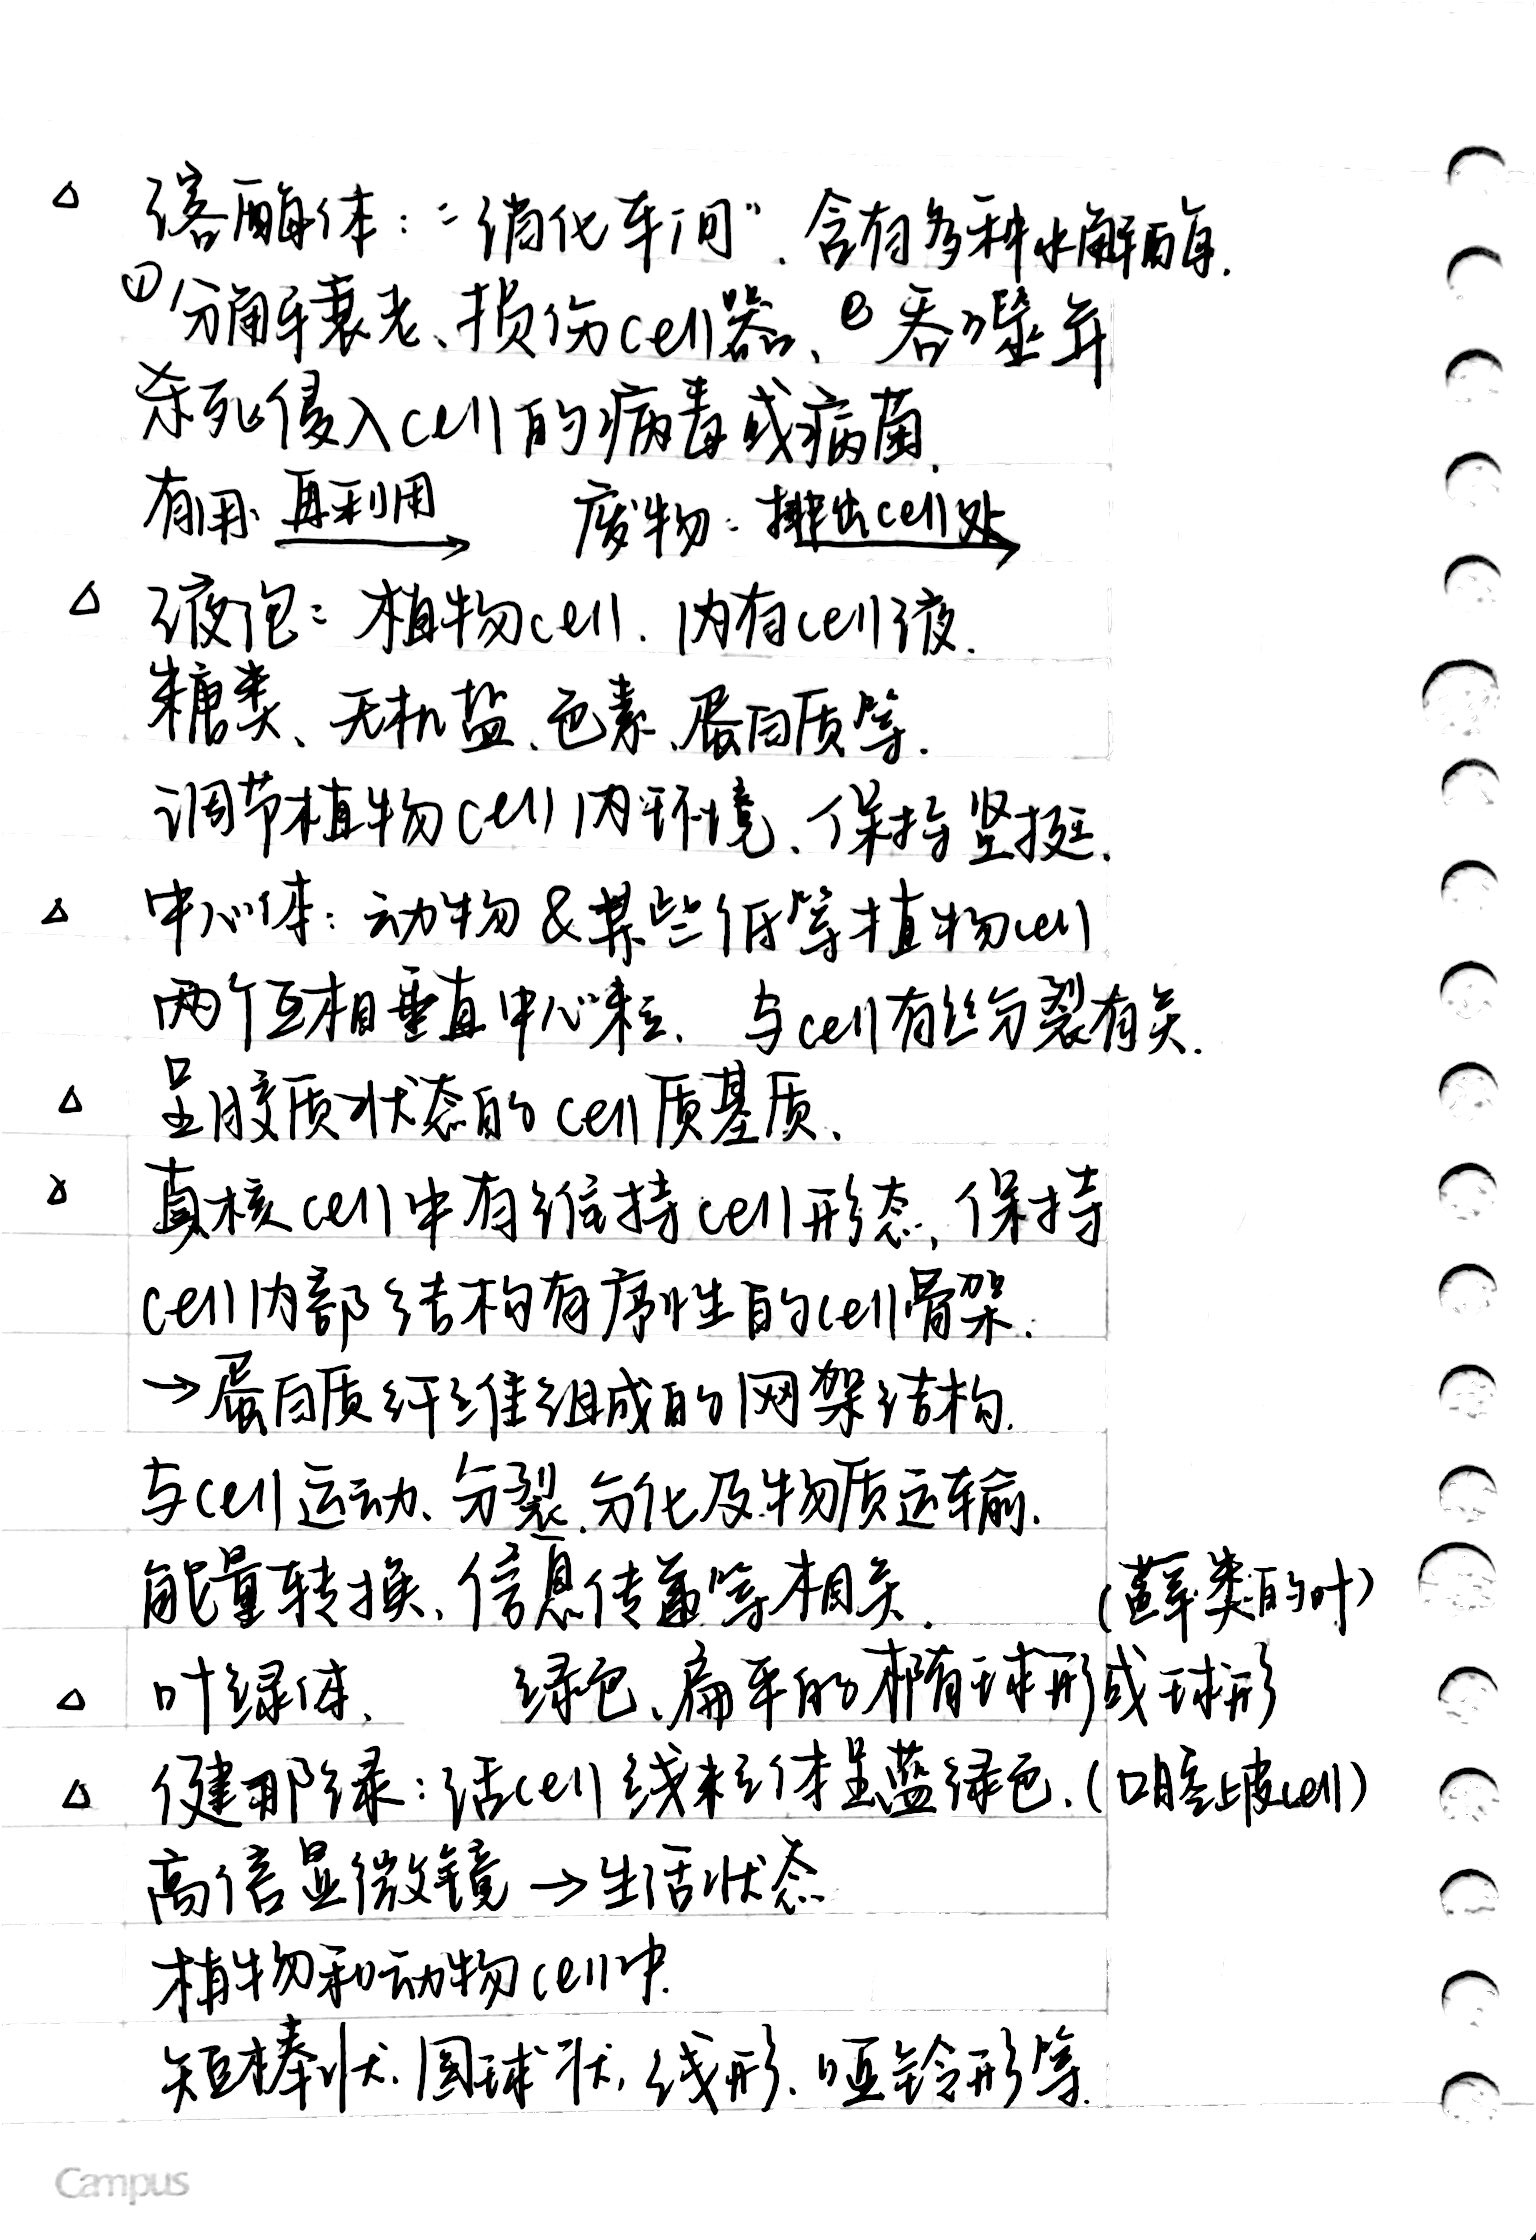 △ 溶酶体：“消化车间”、含有多种水解酶.
①分解衰老、损伤cell器、②吞噬并
杀死侵入cell的病毒或病菌.
有用: 再利用→ 废物: 排出cell外→
△ 液泡: 植物cell. 内有cell液.
糖类、无机盐、色素、蛋白质等.
调节植物cell内环境、保持坚挺.
△ 中心体: 动物&某些低等植物cell
两个互相垂直中心粒. 与cell有丝分裂有关.
△ 呈胶质状态的cell质基质.
△ 真核cell中有维持cell形态, 保持
cell内部结构有序性的cell骨架.
→蛋白质纤维组成的网架结构.
与cell运动、分裂、分化及物质运输.
能量转换、信息传递等相关. (藓类的叶)
△ 叶绿体、 绿色、扁平的椭球形或球形
△ 健那绿: 活cell线粒体呈蓝绿色. (口腔上皮cell)
高倍显微镜→生活状态
植物和动物cell中.
短棒状、圆球状, 线形、哑铃形等.
Campus